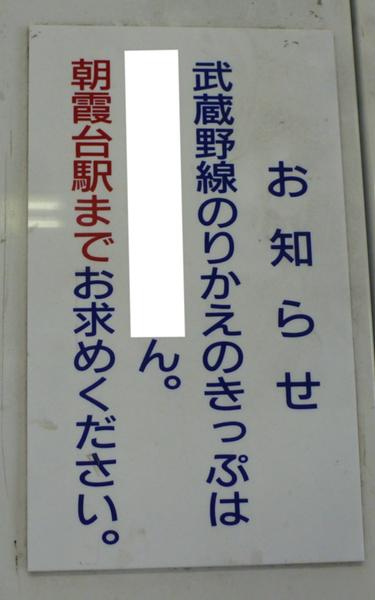 お知らせ
武蔵野線のりかえのきっぷは
ん。
朝霞台駅までお求めください。